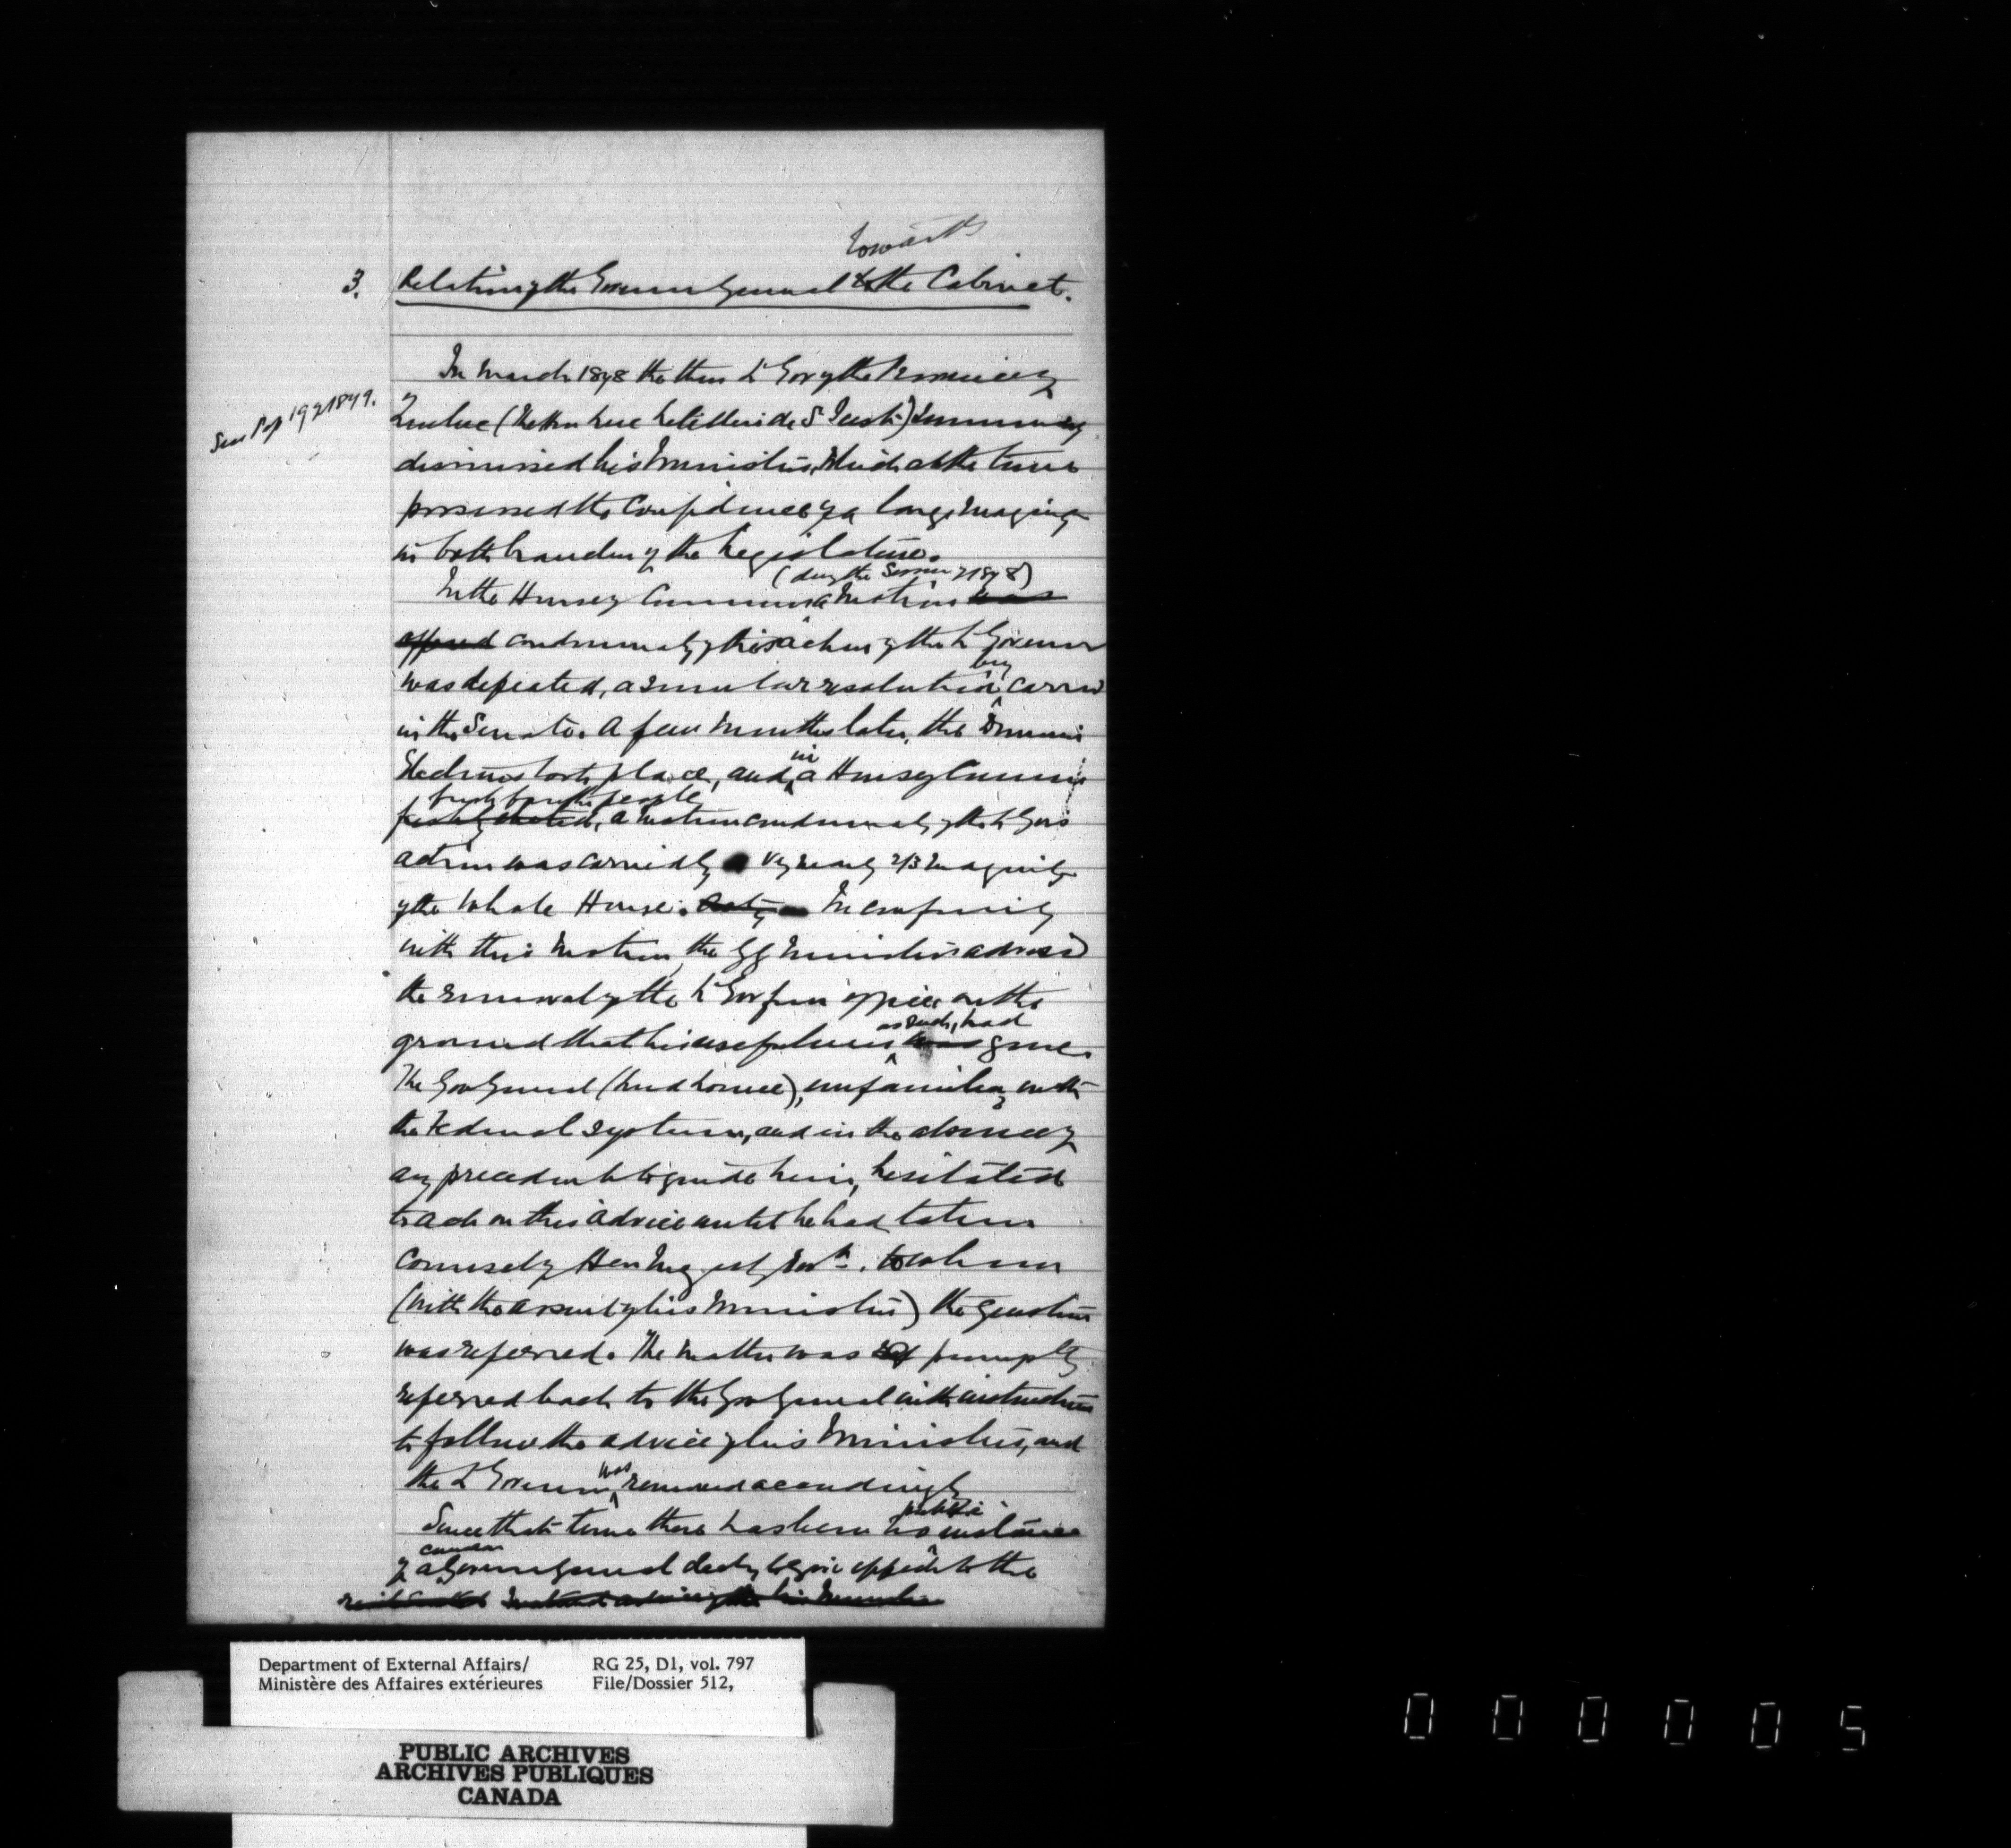 towards
3. Relation of the Governor General to the Cabinet.
In March 1878 the then Lt Gov of the Province of
Sess Pap 19 of 1879.
Quebec (the Hon Luc Letellier de St Just) summarily
dismissed his Ministers, which at the time
possessed the confidence of a large majority
in both branches of the Legislature.
(during the Session of 1878)
In the House of Commons a motion was
offered condemnatory of this action of the Lt Governor
was defeated, a similar resolution being carried
in the Senate. A few months later, the Dominion
Elections took place, and in a House of Commons
fresh from the people
freshly elected, a motion condemnatory of the Lt Gov's
action was carried by very nearly 2/3 majority
of the whole House. In conformity
with this motion, the GG Ministers advised
the removal of the Lt Gov from office on the
as such, had
ground that his usefulness was gone.
The Gov General (Lord Lorne), unfamiliar with
the Federal system, and in the absence of
any precedent to guide him, hesitated
to act on this advice until he had taken
counsel of Her Majesty's Govt. to whom
(with the assent of his Ministers) the question
was referred. The matter was promptly
referred back to the Gov General with instructions
to follow the advice of his Ministers, and
the Lt Governor was removed accordingly
public
Since that time there has been no instance
Canadian
of a Governor General declining to give effect to the
Department of External Affairs/ RG 25, D1, vol. 797
Ministère des Affaires extérieures File/Dossier 512,
PUBLIC ARCHIVES
ARCHIVES PUBLIQUES
CANADA
000005